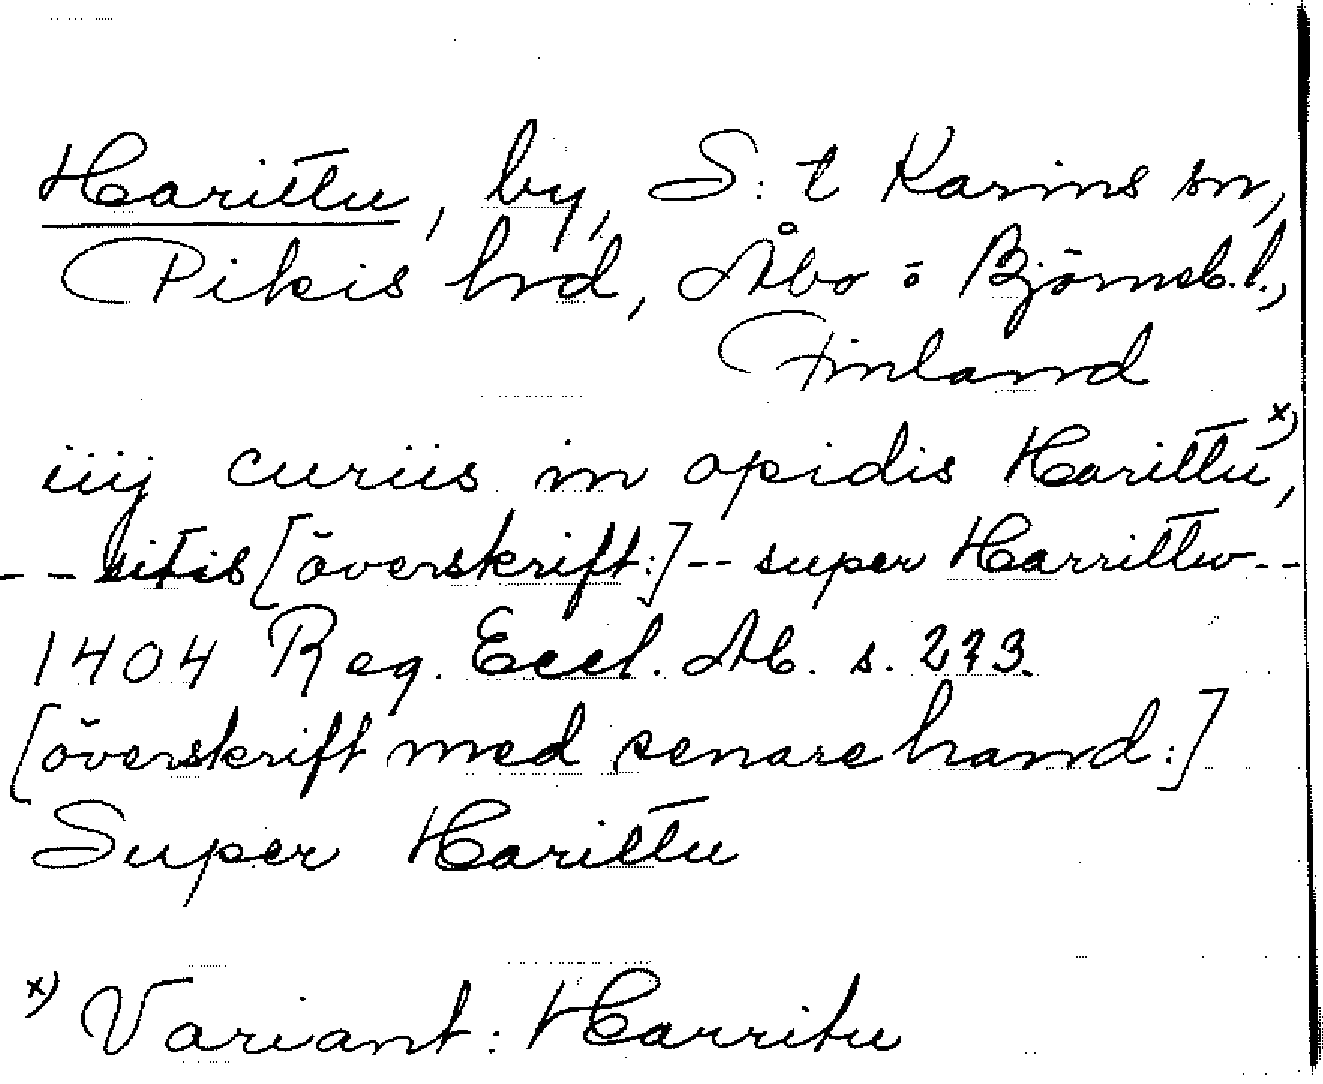 Harittu, by, S:t Karins sn,
Pikis hrd, Åbo o Björneb. l.,
Finland
iiij curiis in opidis Harittu x),
-- sitis [överskrift:] -- super Harrittw --
1404 Reg. Eccl. Ab. s. 273.
[överskrift med senare hand:]
Super Harittu
x) Variant: Harritu